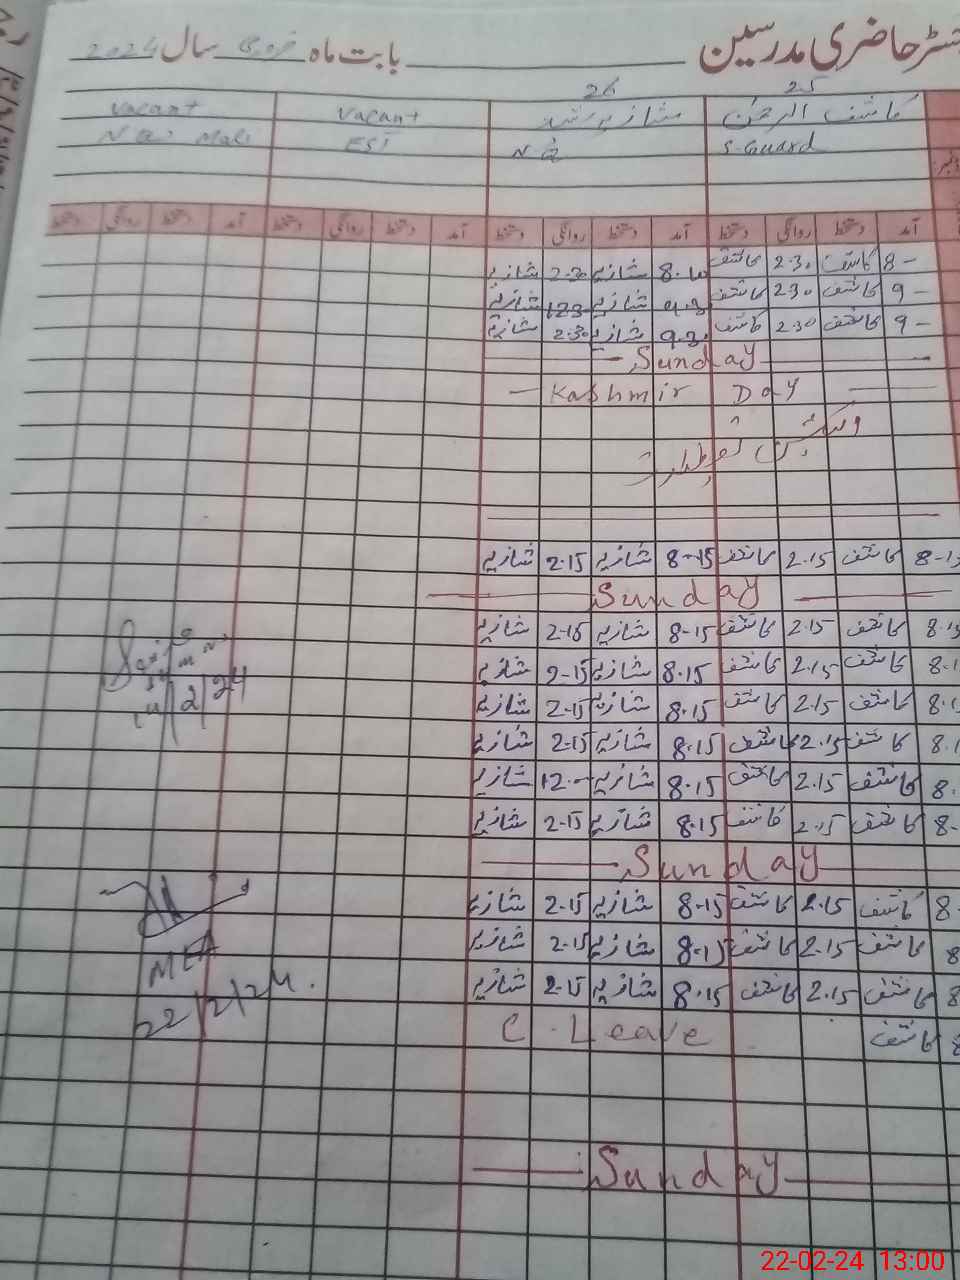 رجسٹر حاضری مدرسین بابت ماہ فروری سال 2024
25 26
کاشف الرحمٰن شازیہ vacant vacant
S-Guard NQ EST NQ Mali
آمد دستخط روانگی دستخط آمد دستخط روانگی دستخط آمد دستخط روانگی دستخط آمد دستخط روانگی دستخط
8- کاشف 2.30 کاشف شازیہ 2.30 شازیہ
9- کاشف 230 کاشف 9.30 شازیہ شازیہ
9- کاشف 2.30 کاشف 9.30 شازیہ 2.30 شازیہ
Sunday
Kashmir Day
8-15 کاشف 2.15 کاشف 8-15 شازیہ 2.15 شازیہ
Sunday
8.15 کاشف 2.15 کاشف 8-15 شازیہ 2-15 شازیہ
کاشف 2.15 کاشف 8.15 شازیہ 2-15 شازیہ
کاشف 2.15 کاشف 8.15 شازیہ 2-15 شازیہ
14/2/24
کاشف 2.15 کاشف 8.15 شازیہ 2-15 شازیہ
کاشف 2.15 کاشف 8.15 شازیہ 12.- شازیہ
کاشف 2.15 کاشف 8.15 شازیہ 2-15 شازیہ
Sunday
کاشف 2.15 کاشف 8-15 شازیہ 2-15 شازیہ
کاشف 2.15 کاشف 8-15 شازیہ 2-15 شازیہ
MEA
کاشف 2.15 کاشف 8.15 شازیہ 2-15 شازیہ
22/2/24.
کاشف C. Leave
Sunday
22-02-24 13:00